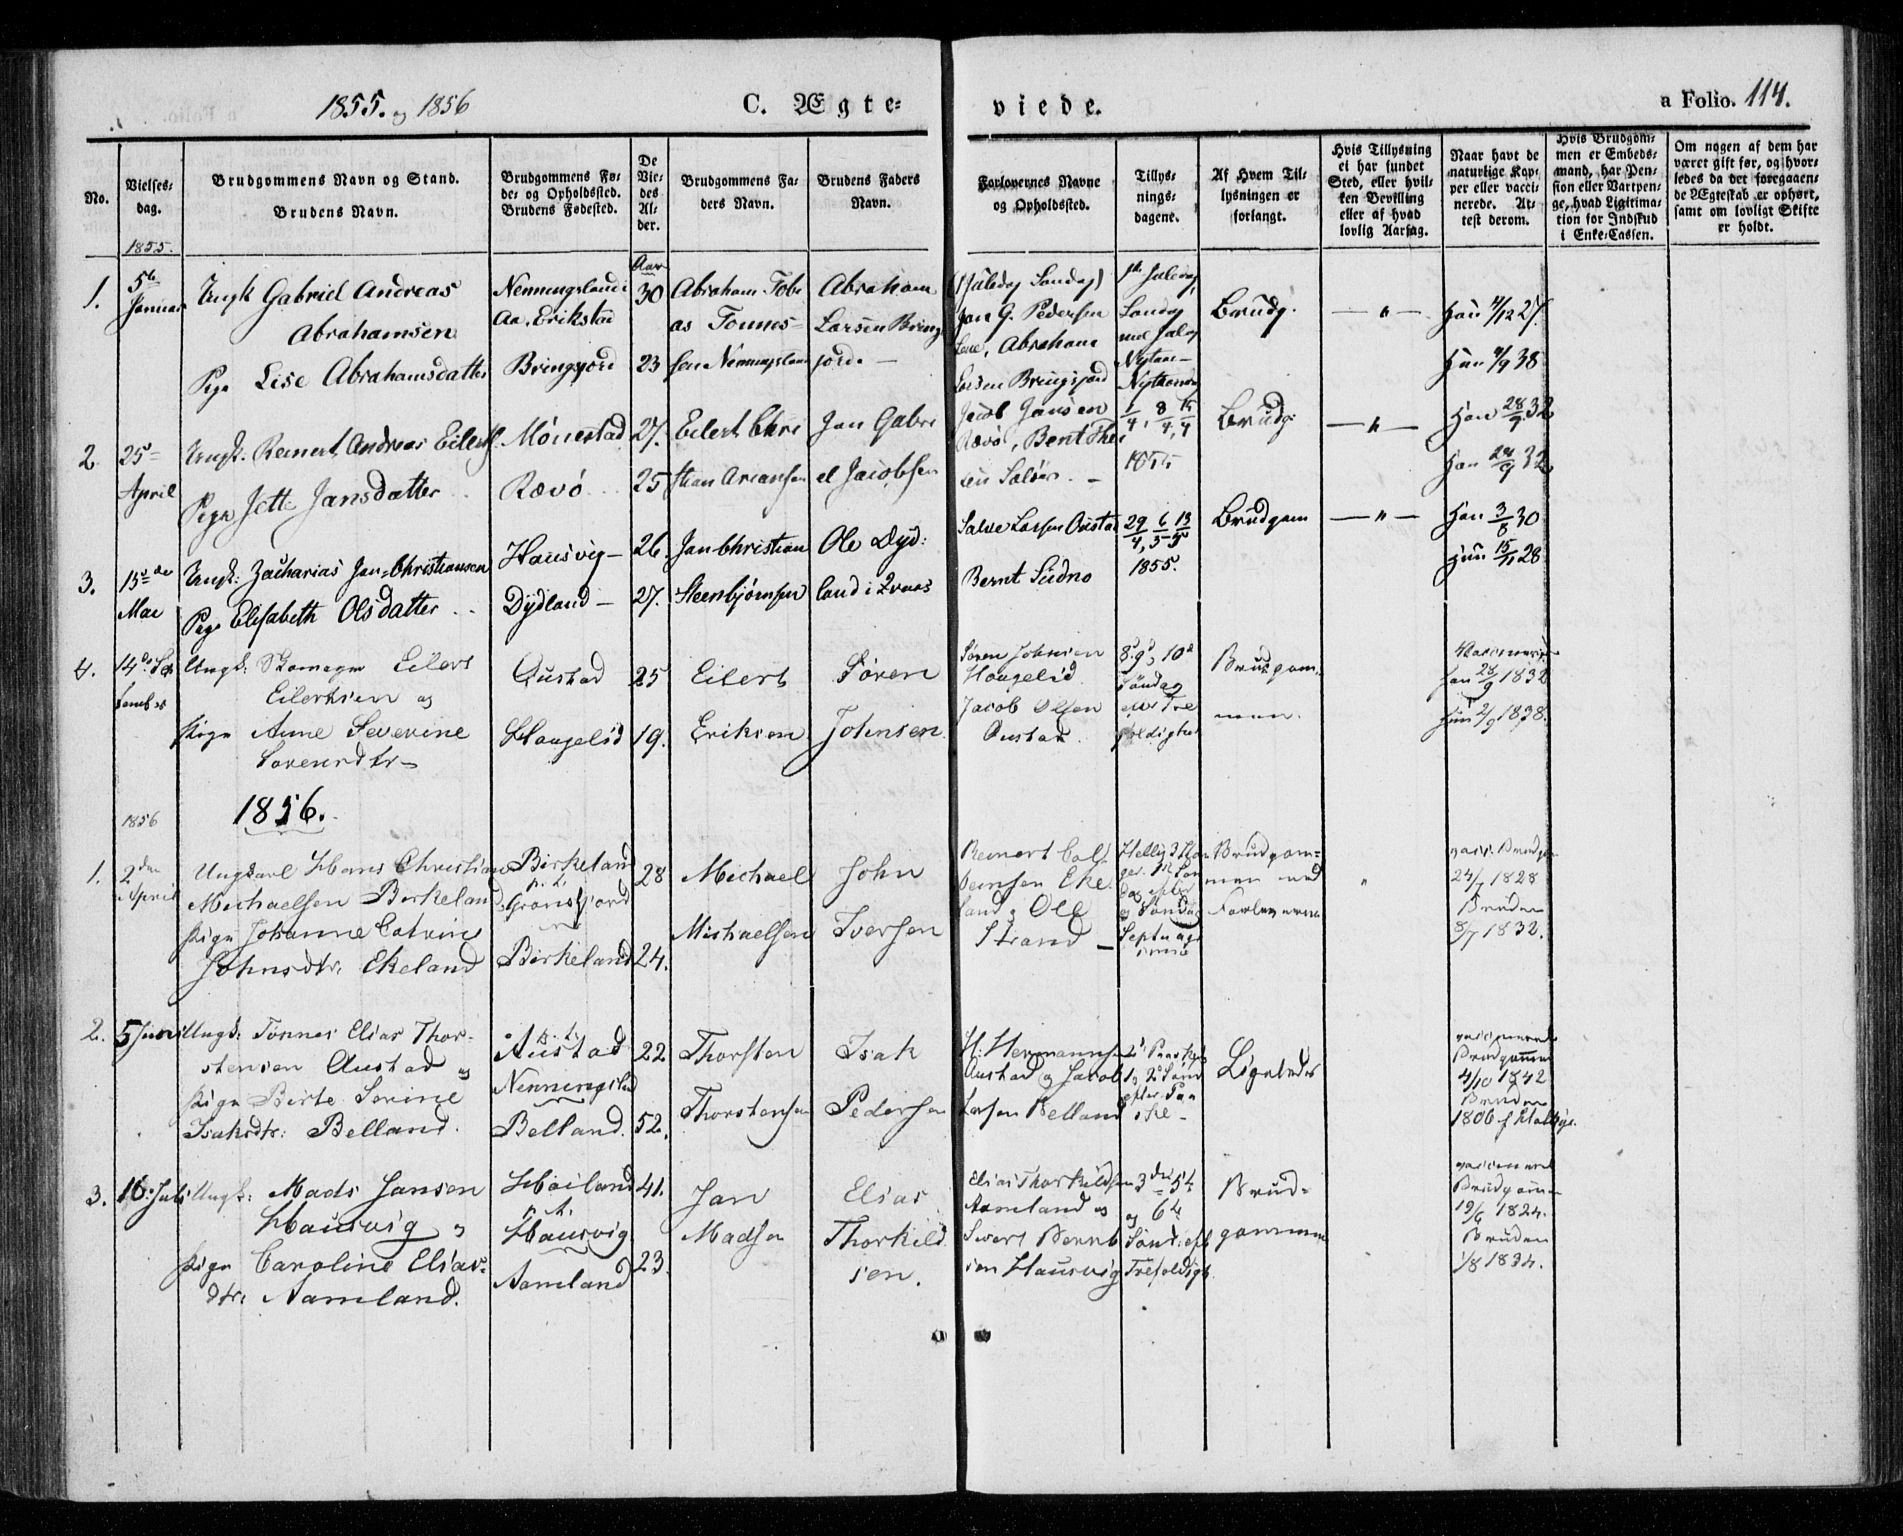 1855. og 1856
C. Ægte=
viede.
a Folio. 114.
No.
Vielses=
dag.
1855.
Brudgommens Navn og Stand.
Brudens Navn.
Brudgommens Fø=
de= og Opholdssted.
Brudens Fødested.
De
Vie=
des
Al=
der.
Brudgommens Fa=
ders Navn.
Brudens Faders
Navn.
Forlovernes Navne
og Opholdssted.
Tillys=
nings=
dagene.
Af Hvem Til=
lysningen er
forlangt.
Hvis Tillysning
ei har fundet
Sted, eller hvil=
ken Bevilling
eller af hvad
lovlig Aarsag.
Naar havt de
naturlige Kop=
per eller vacci=
nerede. At=
test derom.
Hvis Brudgom=
men er Embeds=
mand, har Pen=
sion eller Vartpen=
ge, hvad Ligitima=
tion for Indskud
i Enke=Cassen.
Om nogen af dem har
været gift før, og hvor=
ledes da det foregaaen=
de Ægteskab er ophørt,
samt om lovligt Skifte
er holdt.
1.
5te
Januar
Ungk Gabriel Andreas
Abrahamsen
Pige Lise Abrahamsdatter
Nenningsland i
Aa, Erikstad
Bringsjord
Aar
30
23
Abraham Tobi
as Tønnes-
sen Nenningsland
Abraham
Larsen Brings
jord -
Jan G. Pedersen
Lene, Abraham
Larsen Bringsjord
Søndag
med Juleog
Nytaar
Brudg.
— " —
Han 11/12 27.
Hun 4/9 38.
2
25=
April
Ungk. Reinert Andreas Eilerts.
Pige Jette Jansdatter
Mønestad
Rævø
27.
25
Eilert Chri
stian Ariansen
Jan Gabri
el Jacobsen
Jacob Jansen
Rævø, Bent
1/4, 8/4, 15/4
1855
Brudg:
— " —
Han 28/9 32
Hun 24/9 32
3.
15=de
Mai
Ungk: Zacharias Jan=Christiansen
Pige Elisabeth Olsdatter
Hausvig-
Dydland-
26.
27.
Jan Christian
Steenbjørnsen
Ole Dyd:
land i Qvaas
Salve Larsen Oustad
Bernt Sudno
29/4, 6/5 13/5
1855.
Brudgom
— " —
Han 3/8 30
Hun 15/11 28
4.
14de Sep
tember
Ungk: Skomager Eilert
Eilertsen og
Pige Anne Severine
Sørensdtr-
Oustad
Haugelid
25
19.
Eilert
Eriksen
Søren
Johnsen
Søren Johnsen
Haugelid
Jacob Olsen
Oustad.
8d 9d, 10d
Søndag
eftr Tre
foldighed
Brudgom=
men.
Han 28/9 1832
Hun 2/9 1838.
1856
1856.
1.
2den
April
Ungkarl Hans Christian
Michaelsen Birkeland
Pige Johanne Catrine
Johnsdtr. Ekeland
Birkeland
p. t.
Grønsfjord
Birkeland
28
24.
Michael
Michaelsen
John
Iversen
Reinert Col
bensen Eke
land, Ole
Strand -
Hellig 3 Kon
ger, 1ste Søn
dag efter
og Søndag
Septuage
sima
Brudgom=
men med
Forloverne
"
vacc. Brudgom
24/7 1828
Bruden
8/7 1832.
2.
5 Juni
Ungk: Tønnes Elias Thor-
stensen Austad og
Pige Birte Serine
Isaksdtr: Belland.
p. t.
Austad
Nenningsland
Belland.
22
52.
Thorsten
Thorstensen
Isak
Pedersen
H: Hermannsen
Austad og Jacob
Larsen Belland
2d Paaskedag
1, 2d Sønd
efter Paa
ske-
Ligeledes
vaccinerede
Brudgommen
4/10 1842
Bruden
1806 f.
3.
10. Juli
Ungk: Mads Jansen
Hausvig og
Pige Caroline Elias-
dtr. Aamland.
Høiland
p. t.
Hausvig
Aamland
41.
23.
Jan
Madsen
Elias
Thorkild
sen.
Elias Thorkildsen
Aamland og
Sivert Bernt
sen Hausvig
3die 5te
og 6te
Sønd: eft
Trefoldigh.
Brud=
gommen
vaccinered
Brudgommen
19/6 1824.
Bruden
1/8 1834.